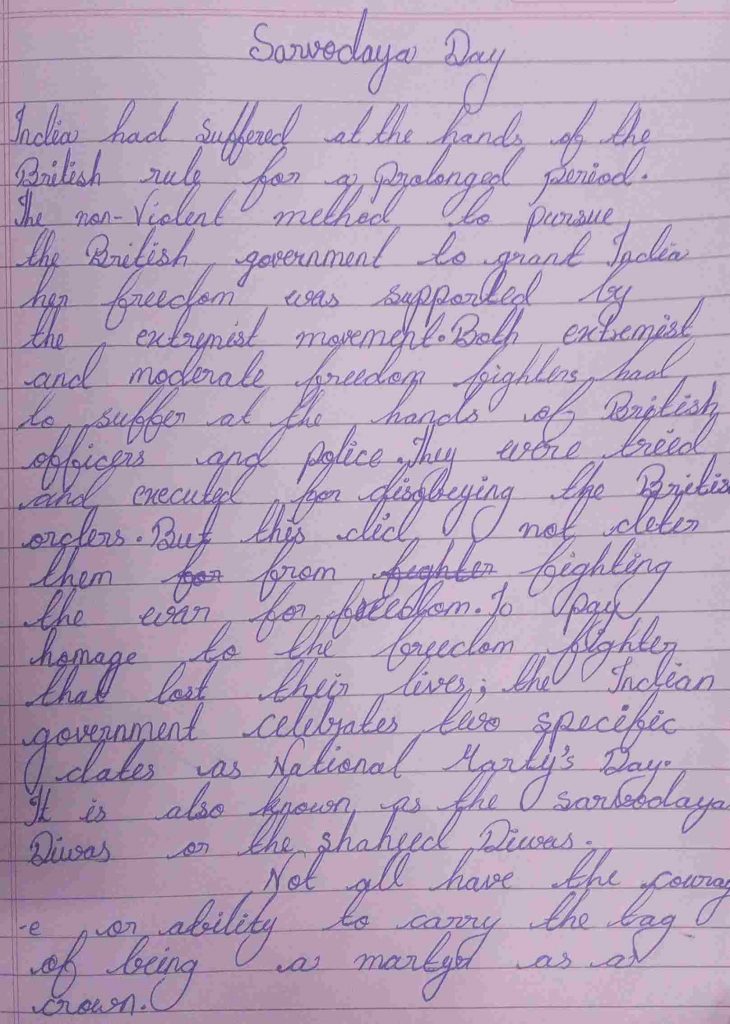 Sarvodaya Day
India had suffered at the hands of the
British rule for a prolonged period.
The non-Violent method to pursue
the British government to grant India
her freedom was supported by
the extremist movement. Both extremist
and moderate freedom fighters had
to suffer at the hands of British
officers and police. They were treed
and executed for disobeying the Britis
orders. But this did not deter
them for from fighter fighting
the war for freedom. To pay
homage to the freedom fighter
that lost their lives, the Indian
government celebrates two specific
dates as National Marty's Day.
It is also known as the Sarvodaya
Diwas or the Shaheed Diwas.
Not all have the courag
-e or ability to carry the tag
of being a martyr as a
crown.